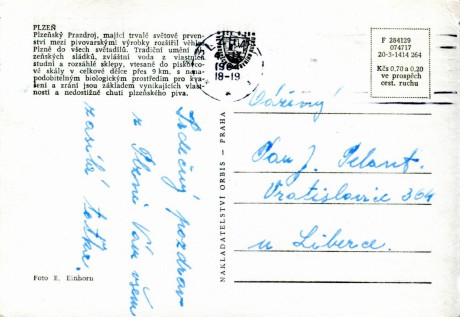 PLZEŇ
Plzeňský Prazdroj, mající trvalé světové prven-
ství mezi pivovarskými výrobky rozšířil věhlas
Plzně do všech světadílů. Tradiční umění
zeňských sládků, zvláštní voda z vlastních
studní a rozsáhlé sklepy, vtesané do pískovco-
vé skály v celkové délce přes 9 km, s nena-
podobitelným biologickým prostředím pro kva-
šení a zrání jsou základem vynikajících vlast-
ností a nedostižné chuti plzeňského piva.
18-19
F 284129
074717
20-3-1414 264
Kčs 0,70 a 0,20
ve prospěch
cest. ruchu
Srdečný pozdrav
z Plzně Vám všem
zasílá
NAKLADATELSTVÍ ORBIS - PRAHA
Vážený
Pan J. Pelant.
Vratislavice 364
u Liberce.
Foto E. Einhorn